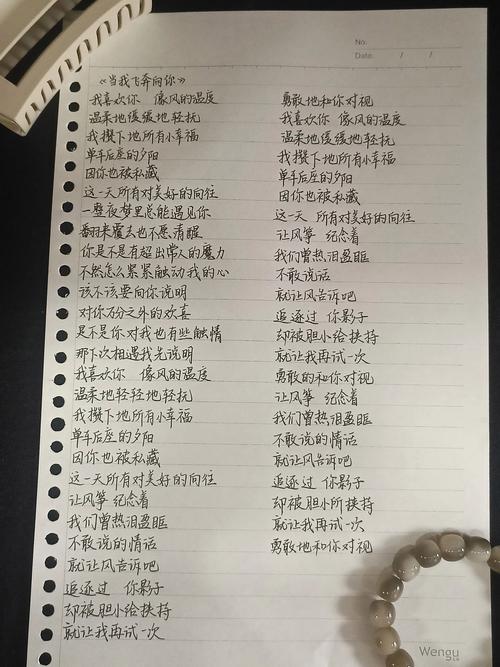 No.
Date:    /    /
《当我飞奔向你》
我喜欢你 像风的温度
温柔地缓缓地轻抚
我攒下地所有小幸福
单车后座的夕阳
因你也被私藏
这一天所有对美好的向往
一整夜梦里总能遇见你
翻来覆去也不愿清醒
你是不是有超出常人的魔力
不然怎么紧紧触动我的心
该不该要向你说明
对你万分之外的欢喜
是不是你对我也有些触情
那下次相遇我先说明
我喜欢你 像风的温度
温柔地轻轻地轻抚
我攒下地所有小幸福
单车后座的夕阳
因你也被私藏
这一天所有对美好的向往
让风筝 纪念着
我们曾热泪盈眶
不敢说的情话
就让风告诉吧
追逐过 你影子
却被胆小给挟持
就让我再试一次
勇敢地和你对视
我喜欢你 像风的温度
温柔地缓缓地轻抚
我攒下地所有小幸福
单车后座的夕阳
因你也被私藏
这一天 所有对美好的向往
让风筝 纪念着
我们曾热泪盈眶
不敢说话
就让风告诉吧
追逐过 你影子
却被胆小给挟持
就让我再试一次
勇敢的和你对视
让风筝 纪念着
我们曾热泪盈眶
不敢说的情话
就让风告诉吧
追逐过 你影子
却被胆小所挟持
就让我再试一次
勇敢地和你对视
Wengu